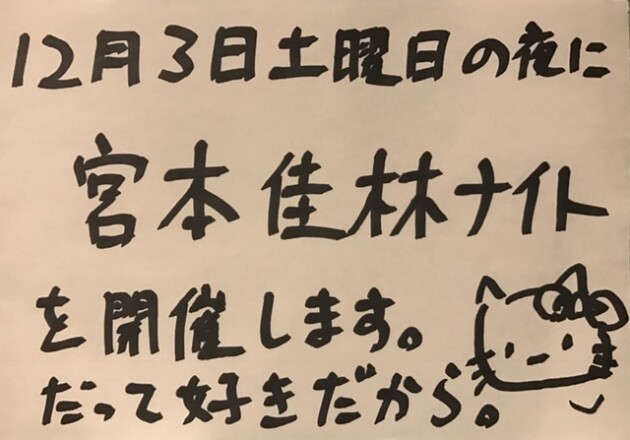 12月3日土曜日の夜に
宮本佳林ナイト
を開催します。
だって好きだから。